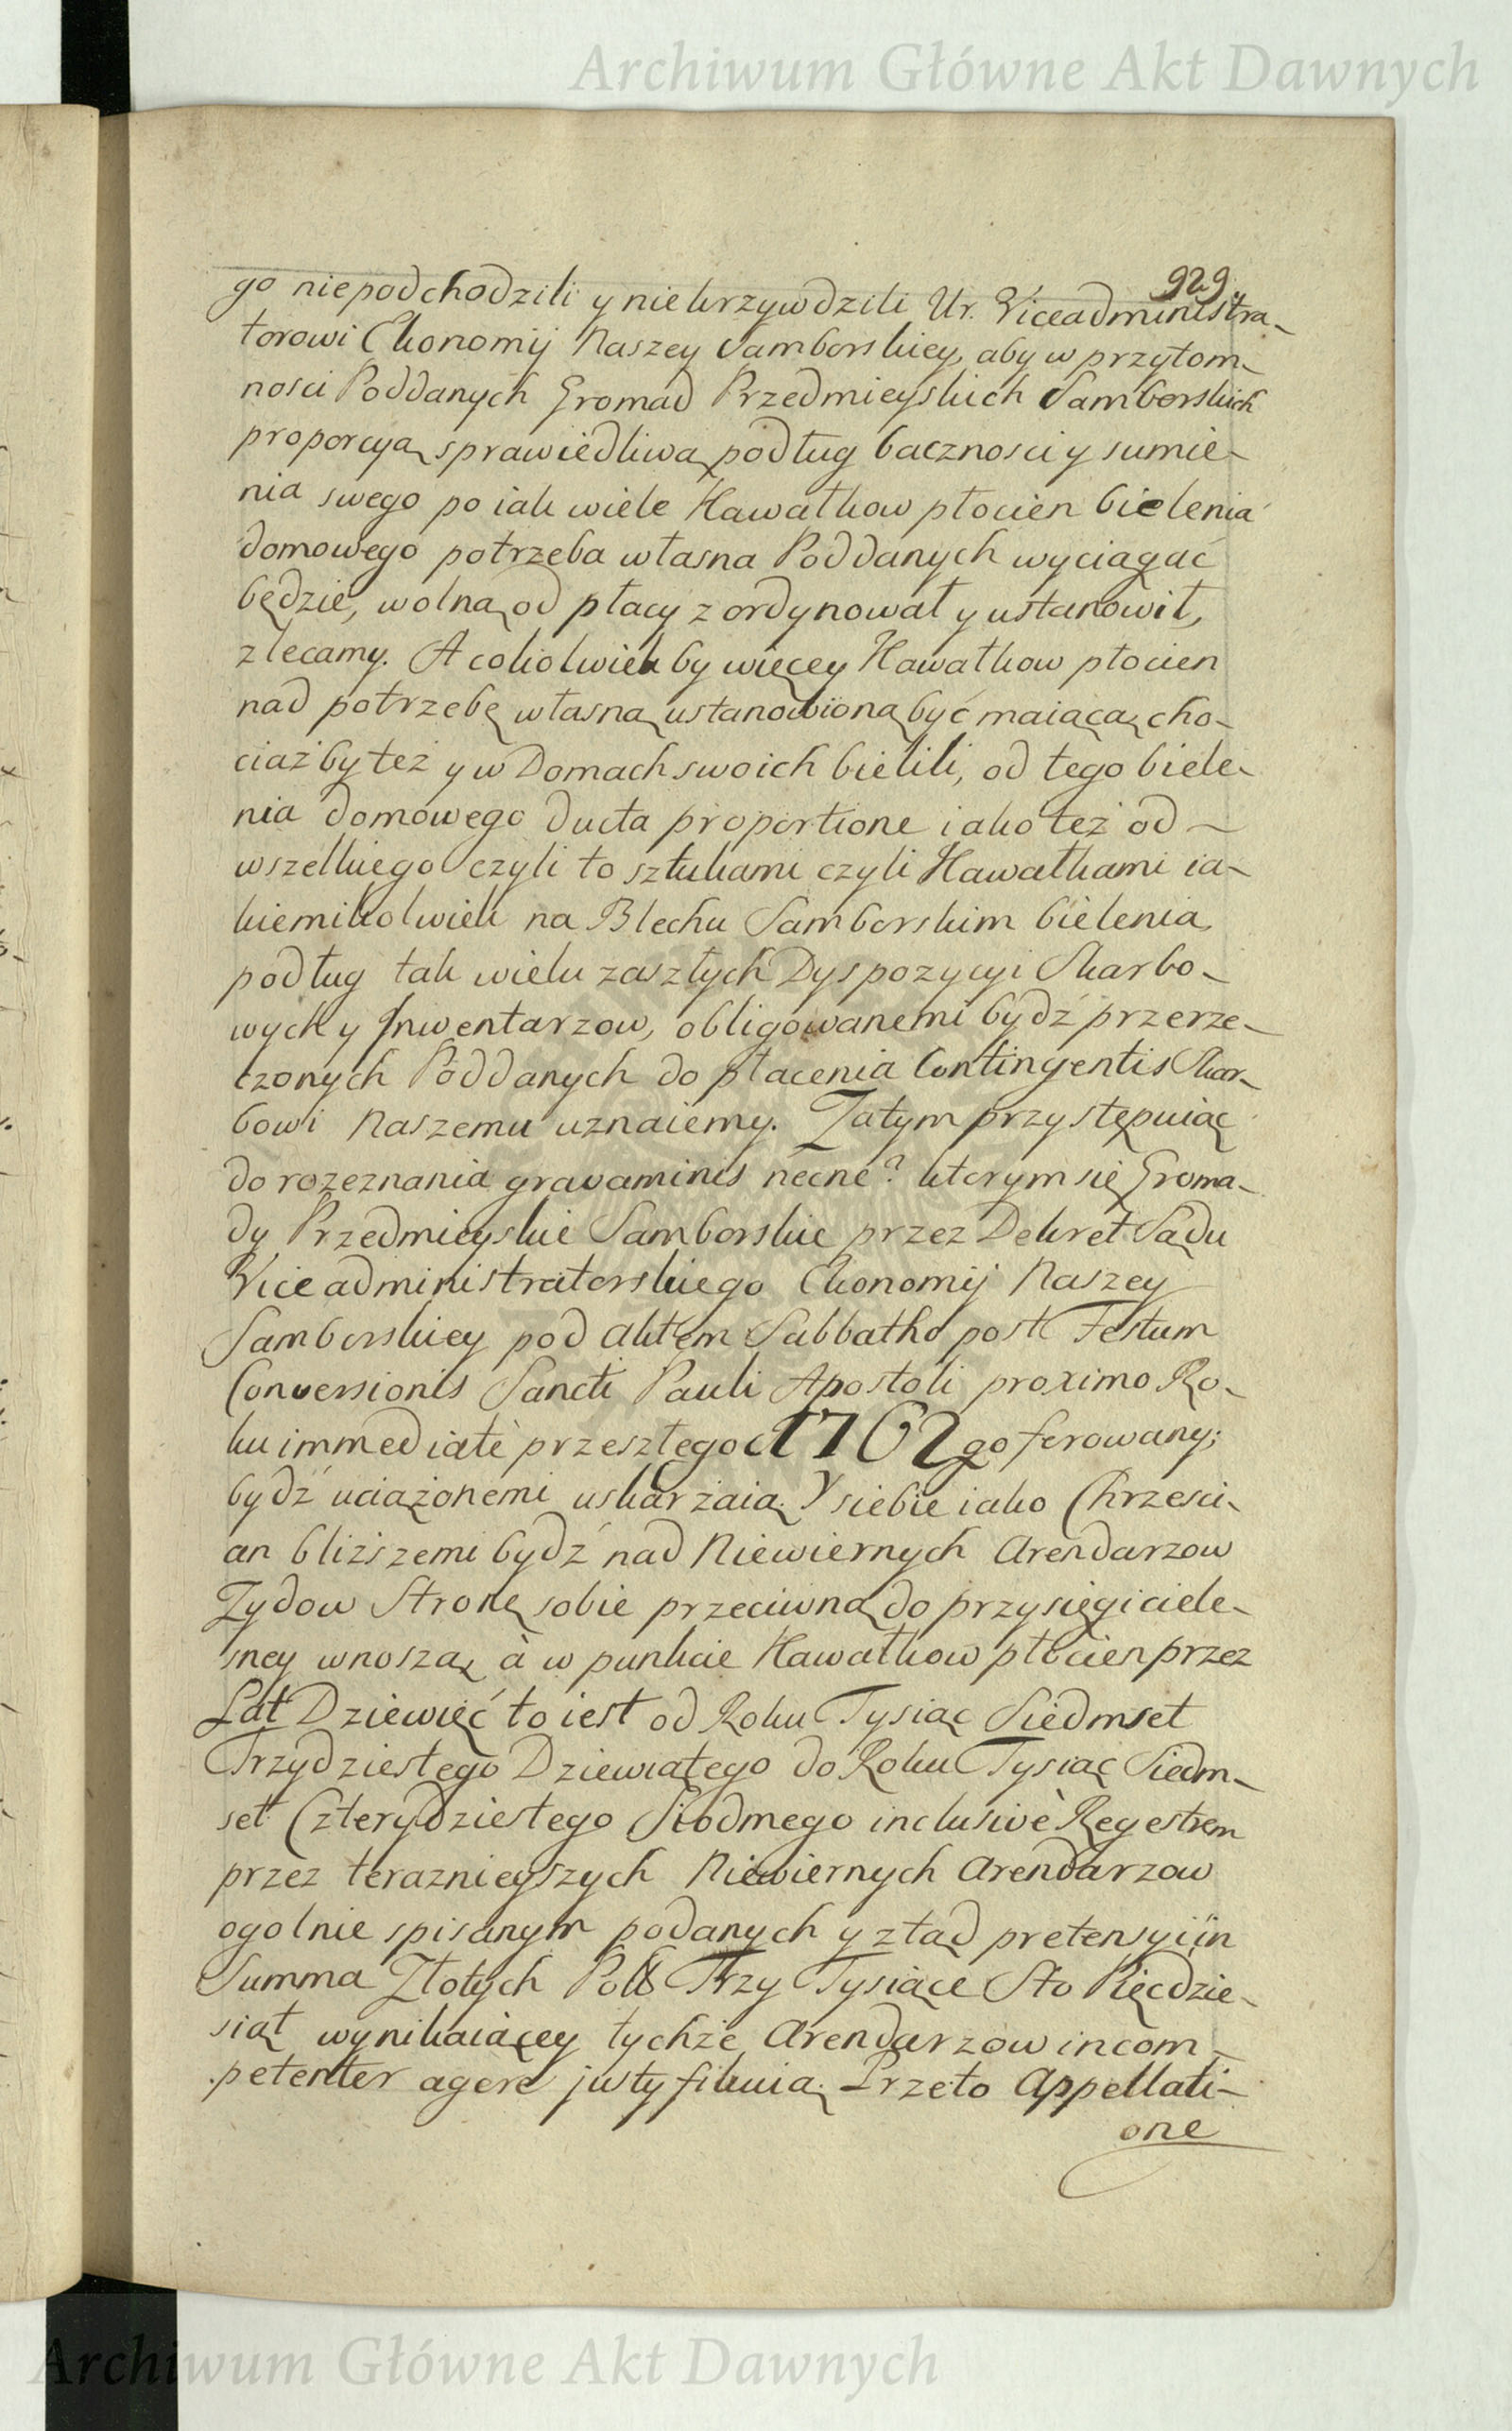 Archiwum Główne Akt Dawnych
929.
go niepodchodzili y niekrzywdzili Ur. Viceadministra-
torowi Ekonomij Naszey Samborskiey, aby w przytom-
nosci Poddanych Gromad Przedmieyskich Samborskich
proporcyą sprawiedliwą podług bacznosci y sumie-
nia swego po iak wiele Kawałkow płocien bielenia
domowego potrzeba własna Poddanych wyciągać
będzie, wolną od płacy zordynował y ustanowił,
zlecamy. A cokolwiek by więcey Kawałkow płocien
nad potrzebę własną ustanowioną być maiącą, cho-
ciażby też y w Domach swoich bielili, od tego biele-
nia domowego ducta proportione iako też od
wszelkiego czyli to sztukami czyli Kawałkami ia-
kiemikolwiek na Blechu Samborskim bielenia,
podług tak wielu zaszłych Dyspozycyi Skarbo-
wych y Inwentarzow, obligowanemi bydź przerze-
czonych Poddanych do płacenia Contingentis Skar-
bowi Naszemu uznaiemy. Zatym przystępuiąc
do rozeznania gravaminis necne? ktorym się Groma-
dy Przedmieyskie Samborskie przez Dekret Sądu
Viceadministratorskiego Ekonomij Naszey
Samborskiey pod aktem Sabbatho post Festum
Conversionis Sancti Pauli Apostoli proximo Ro-
ku immediatè przeszłego 1762go ferowany;
bydź uciążonemi uskarżaią. Y siebie iako Chrzesci-
an bliższemi bydź nad Niewiernych Arendarzow
Zydow Stronę sobie przeciwną do przysięgi ciele-
sney wnoszą, à w punkcie Kawałkow płocien przez
Lat Dziewięć to iest od Roku Tysiąc Siedmset
Trzydziestego Dziewiątego do Roku Tysiąc Siedm-
set Czterydziestego Siodmego inclusivè Regestrem
przez teraznieyszych Niewiernych Arendarzow
ogolnie spisanym podanych y ztąd pretensyi in
Summa Złotych Pols Trzy Tysiące Sto Pięćdzie-
siąt wynikaiącey tychże Arendarzow incom-
petenter agere justyfikuią. Przeto Appellati-
one
Archiwum Główne Akt Dawnych